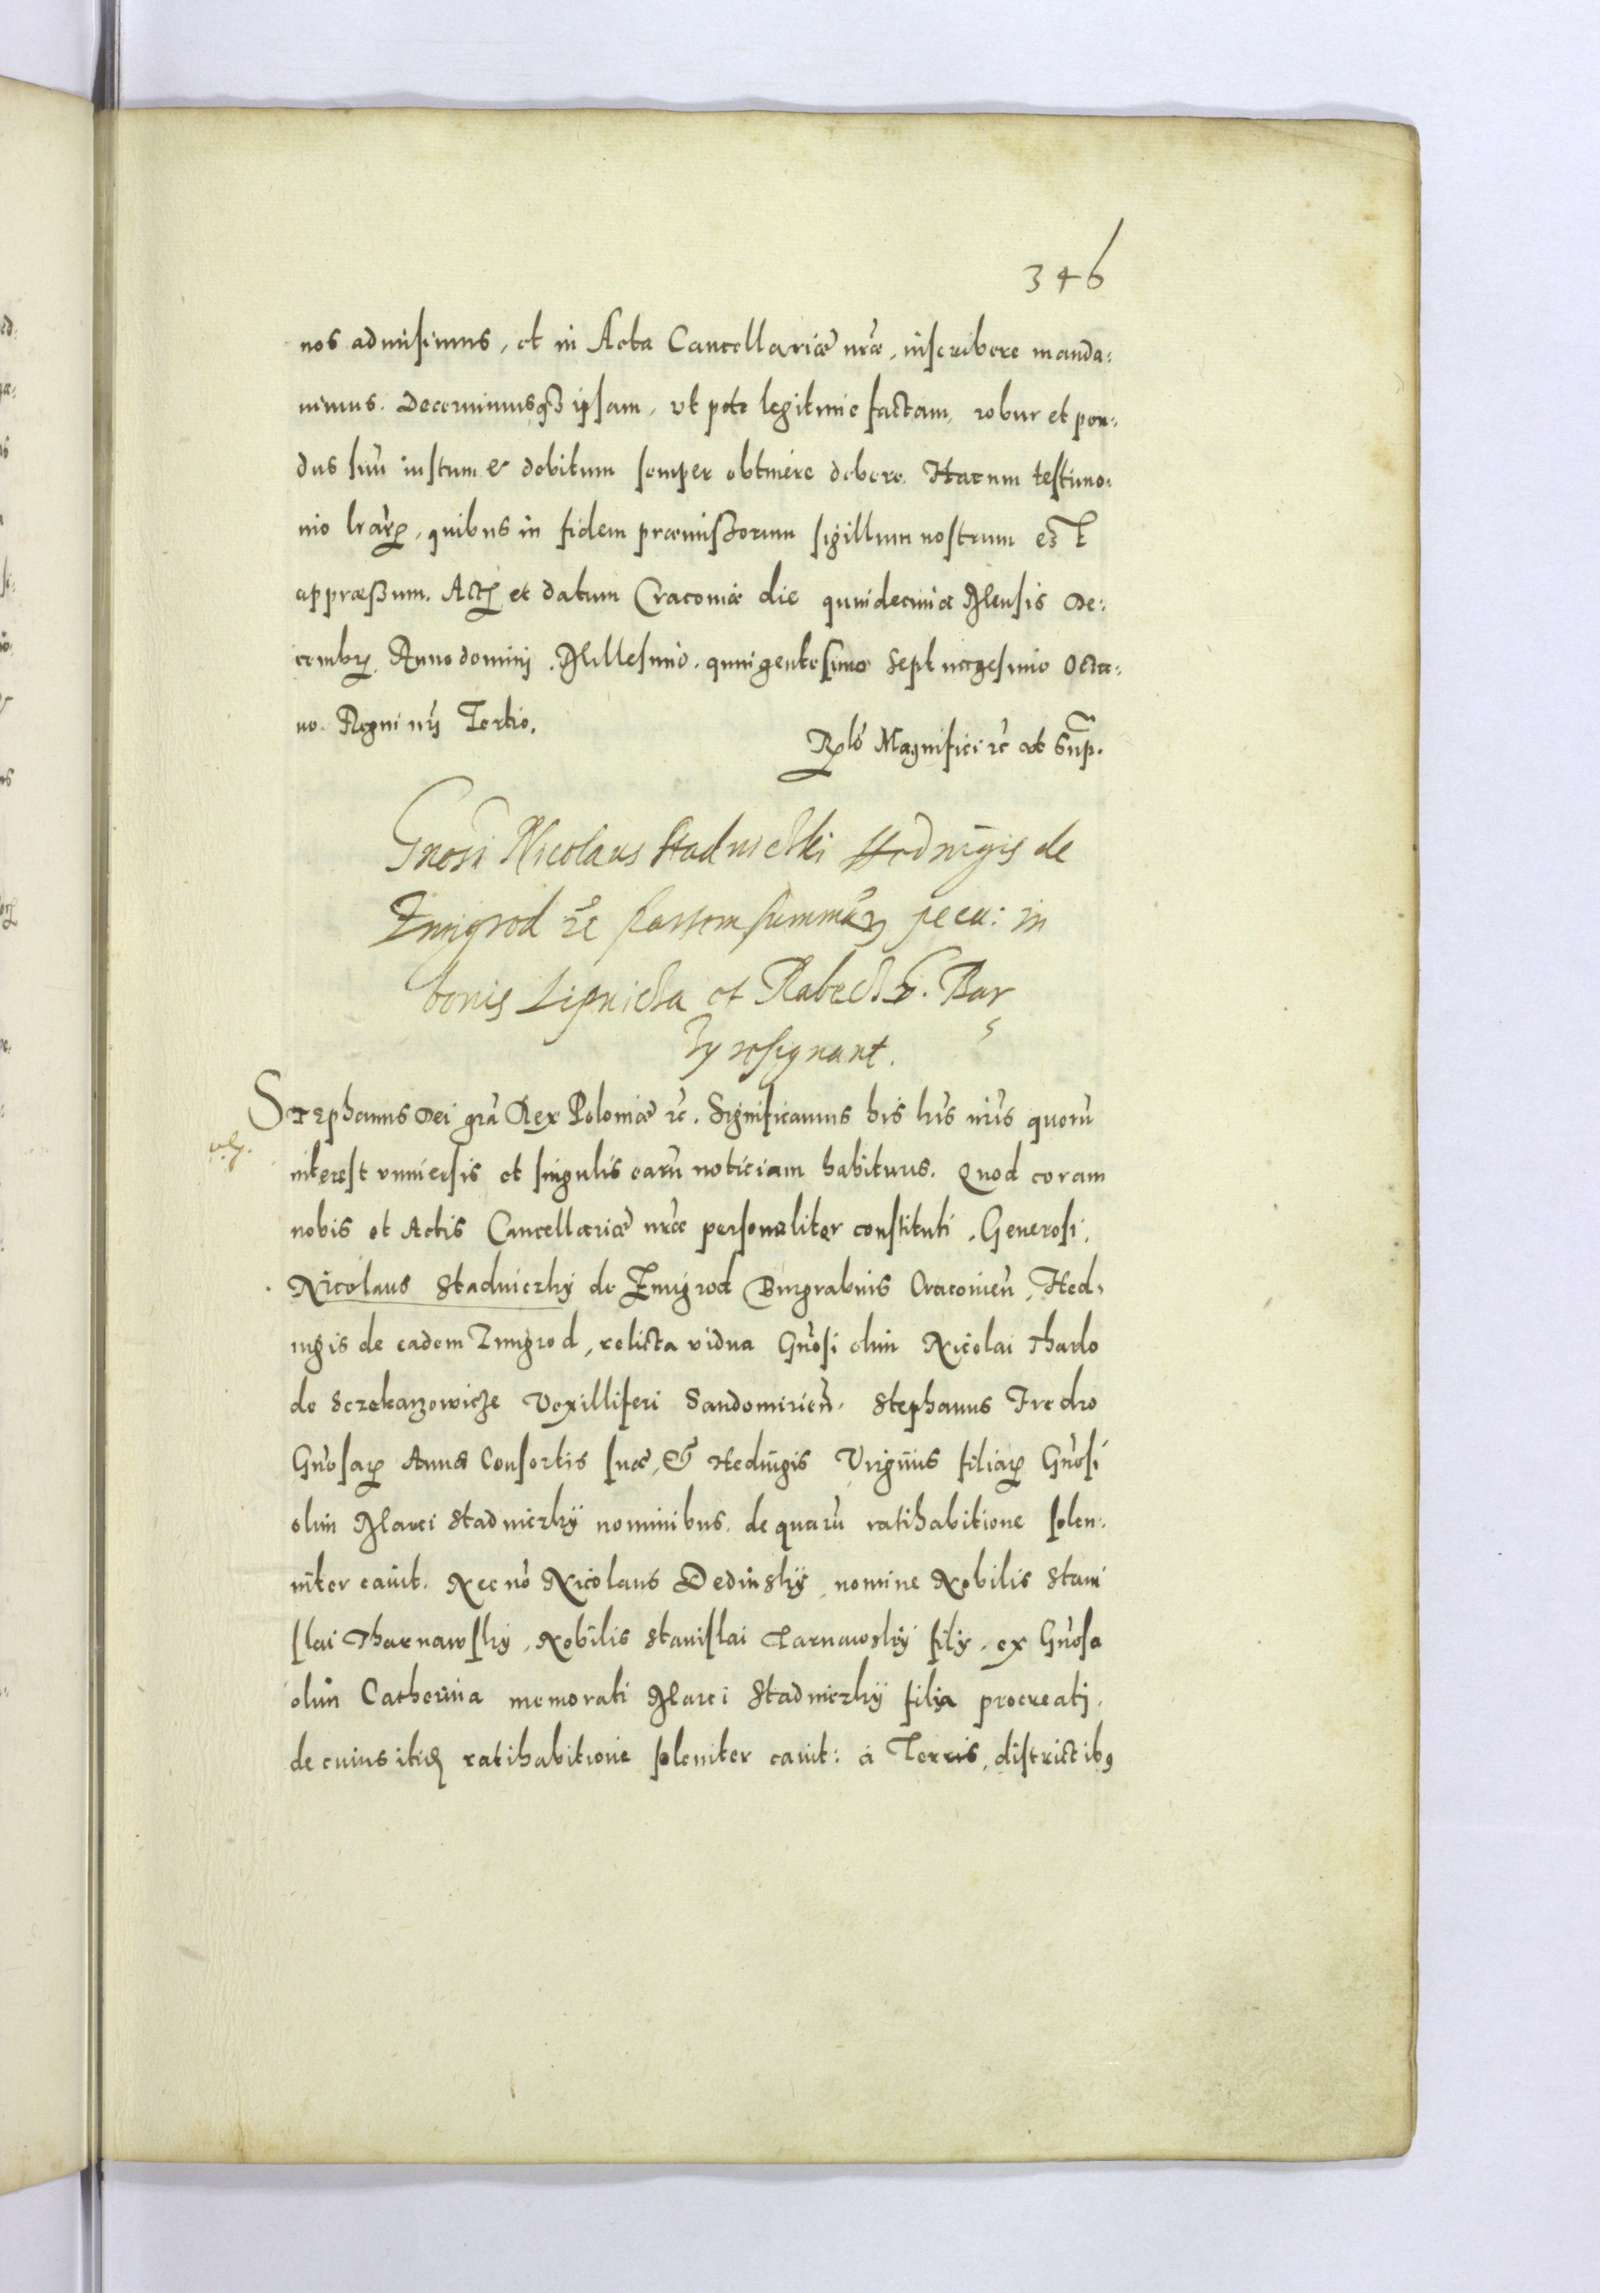 346
nos admisimus, et in Acta Cancellariæ nr̃æ, inscribere manda:
uimus. Decernimusqȝ ipsam, vt pote legitime factam, robur et pon:
dus suũ iustum & debitum semper obtinere debere. Harum testimo:
nio lr̃arꝝ, quibus in fidem præmissorum sigillum nostrum est
appræssum. Actũ et datum Cracouiæ die quindecima Mensis De:
cembrꝭ. Anno domini. Millesimo. quingentesimo septuagesimo Octa:
uo. Regni nr̃j Tertio.
Rel̃o Magnifici ꝛc̃ vt sup̃.
Gnosi Nicolaus Stadnicki Hedvigis de
Zmigrod ꝛc̃ summam pecu: in
bonis Lipnicza et
resignant.
Stephanus Dei grã Rex Poloniæ ꝛc̃. Significamus his lr̃is nr̃is quorũ
interest vniuersis et singulis earũ noticiam habituris. Quod coram
nobis et Actis Cancellariæ nr̃æ personaliter constituti, Generosi,
Nicolaus Stadniczky de Zmigrod Burgrabius Cracouieñ, Hed:
uigis de eadem Zmigrod, relicta vidua Gñosi olim Nicolai Tharlo
de Sczekarzowicze Vexilliferi Sandomirieñ. Stephanus Fredro
Gñosarꝝ Annæ Consortis suæ, & Heduigis Virginis filiarꝝ Gñosi
olim Marci Stadniczky nominibus. de quarũ ratihabitione solen:
niter cauit. Nec nõ Nicolaus Dedinsky, nomine Nobilis Stani
slai Tharnawsky, Nobilis Stanislai Tarnawsky filij, ex Gñosa
olim Catherina memorati Marci Stadniczky filia procreati,
de cuius itidẽ ratihabitione soleniter cauit: à Terris, districtibꝯ